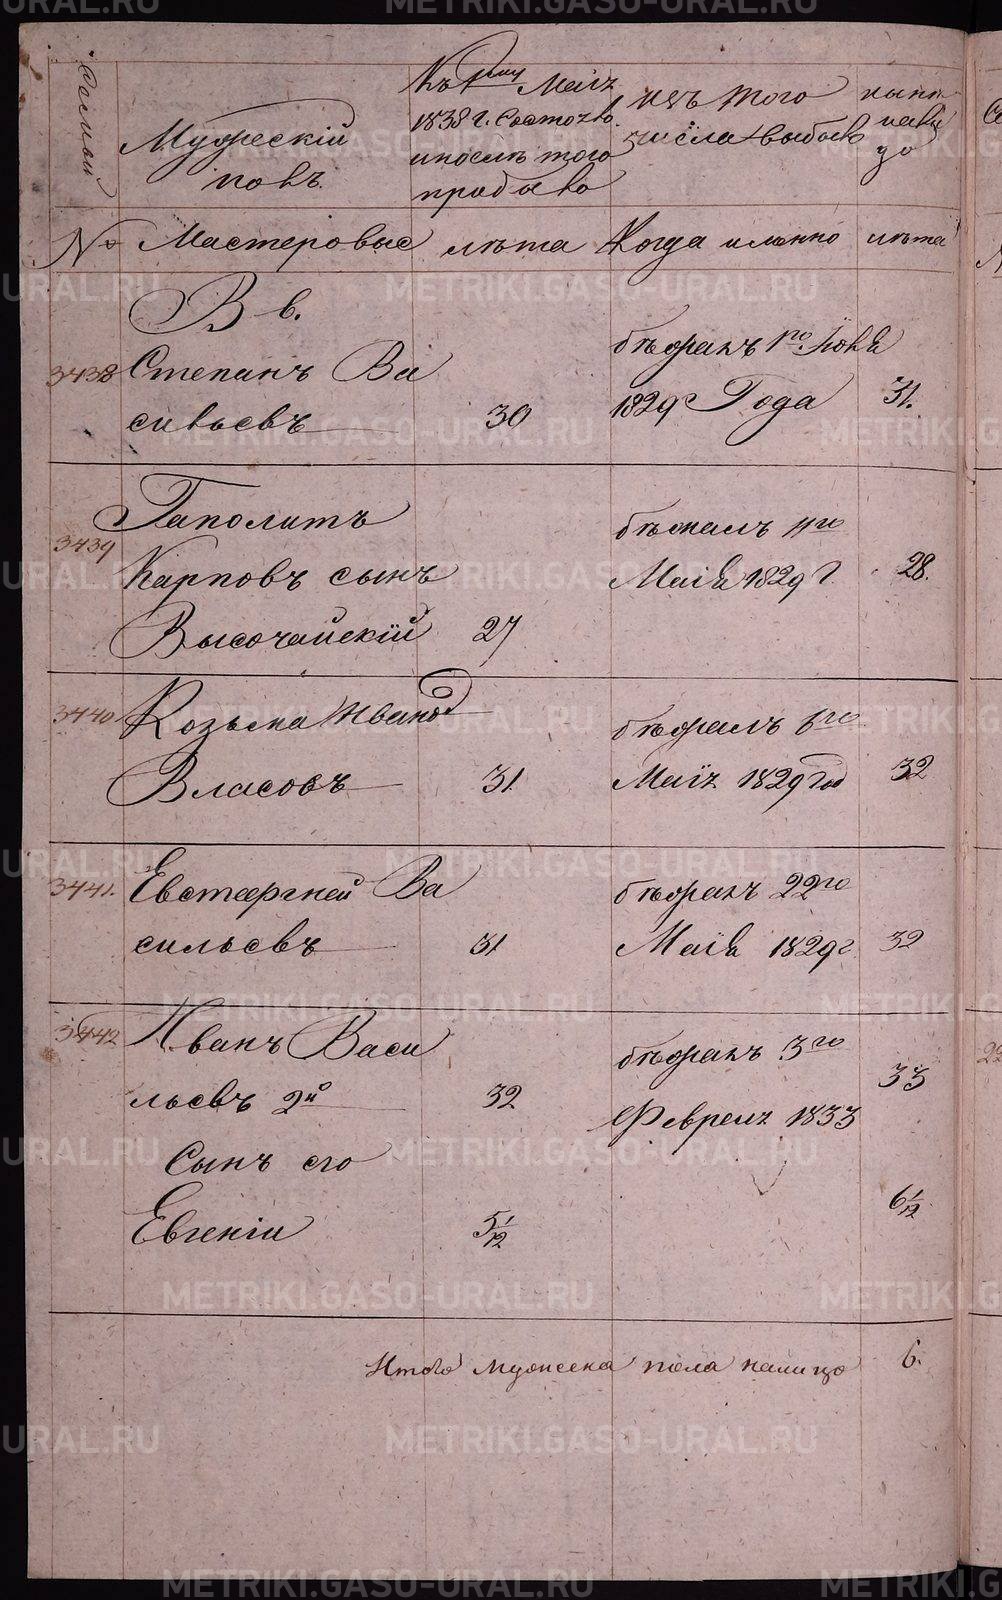 Мужескій
полъ.
Къ 1му Маія
1838 г. Состояло
и после того
прибыло
изъ того
числа выбыло
ныне
нали
цо
№ Мастеровые лѣта Когда именно лѣта
В в.
3438 Степанъ Ва
сильевъ 30
бѣжалъ 1го Іюня
1829 Года 31.
3439 Гаполитъ
Карповъ сынъ
Высочайскій 27
бѣжалъ 11го
Маія 1829 г. 28.
3440 Козьма Иванов
Власовъ 31
бѣжалъ 6го
Маія 1829 год 32
3441. Евстафией Ва
сильевъ 31
бѣжалъ 22го
Маія 1829 г. 32
3442 Иванъ Васи
льевъ 2й 32
бѣжалъ 3го
Февраля 1833 33
Сынъ его
Евгеніи 5 1/12 6 1/12
Итого мужеска пола налицо 6.
METRIKI.GASO-URAL.RU